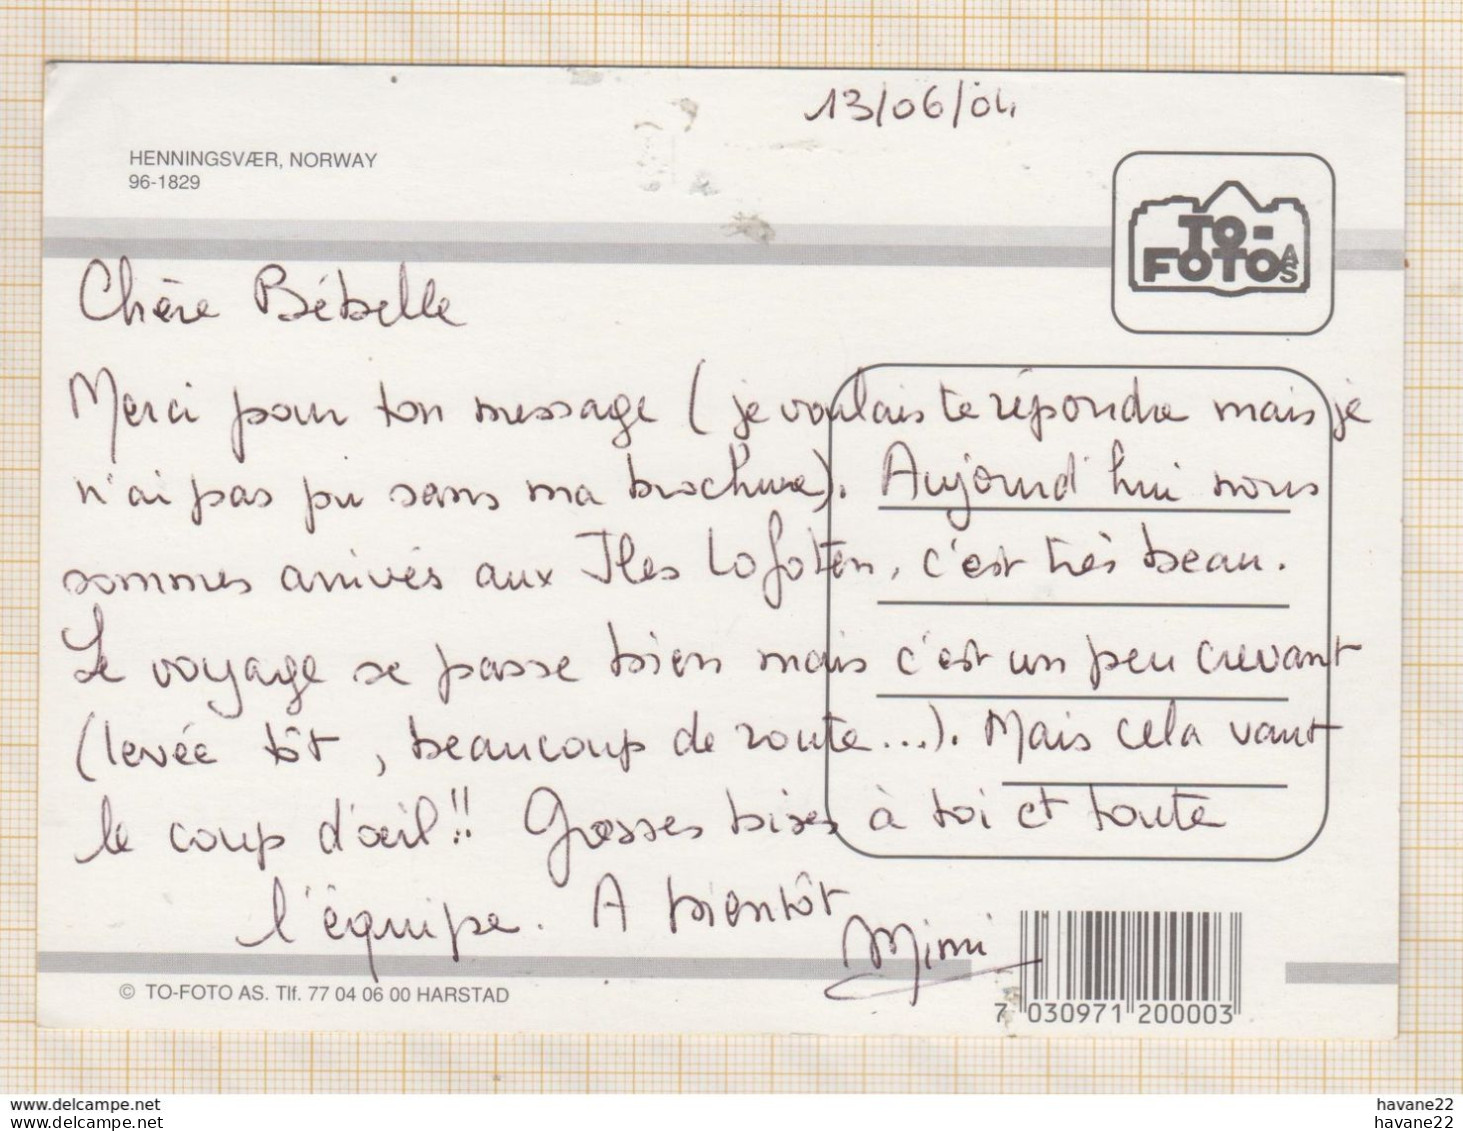 13/06/04
HENNINGSVÆR, NORWAY
96-1829
TO-
FOTO AS
Chère Bébelle
Merci pour ton message ( je voulais te répondre mais je
n'ai pas pu sans ma brochure). Aujourd'hui nous
sommes arrivés aux Iles Lofoten, c'est très beau.
Le voyage se passe bien mais c'est un peu crevant
(levée tôt, beaucoup de route...). Mais cela vaut
le coup d'œil!! Grosses bises à toi et toute
l'équipe. A bientôt
Mimi
© TO-FOTO AS. Tlf. 77 04 06 00 HARSTAD
7 030971 200003
havane22
havane22
havane22
havane22